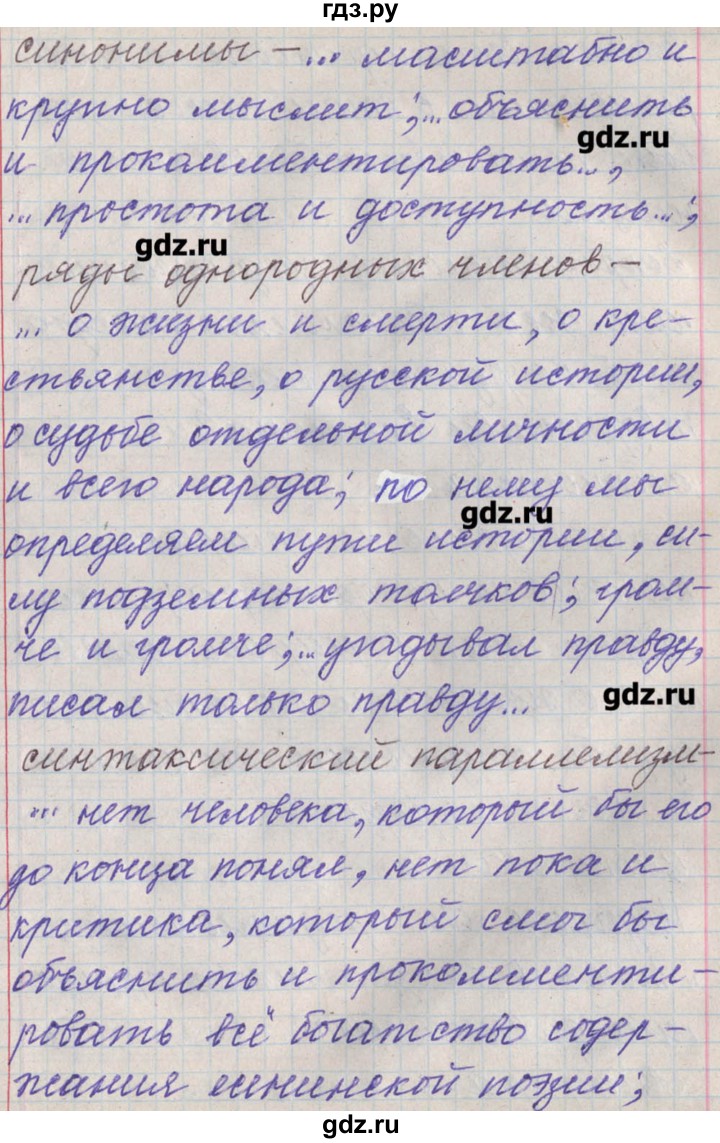 гдз.ру
синонимы – ... масштабно и
крупно мыслит; ... объяснить
gdz.ru
и прокомментировать...,
... простота и доступность...;
gdz.ru
ряды однородных членов –
... о жизни и смерти, о кре-
стьянстве, о русской истории,
о судьбе отдельной личности
и всего народа; по нему мы
gdz.ru
определяем пути истории, си-
лу подземных толчков; гром-
че и громче; ... угадывал правду,
gdz.ru
писал только правду...
синтаксический параллелизм-
... нет человека, который бы его
до конца понял, нет пока и
критика, который смог бы
объяснить и прокомменти-
ровать всё богатство содер-
жания
поэзии;
gdz.ru